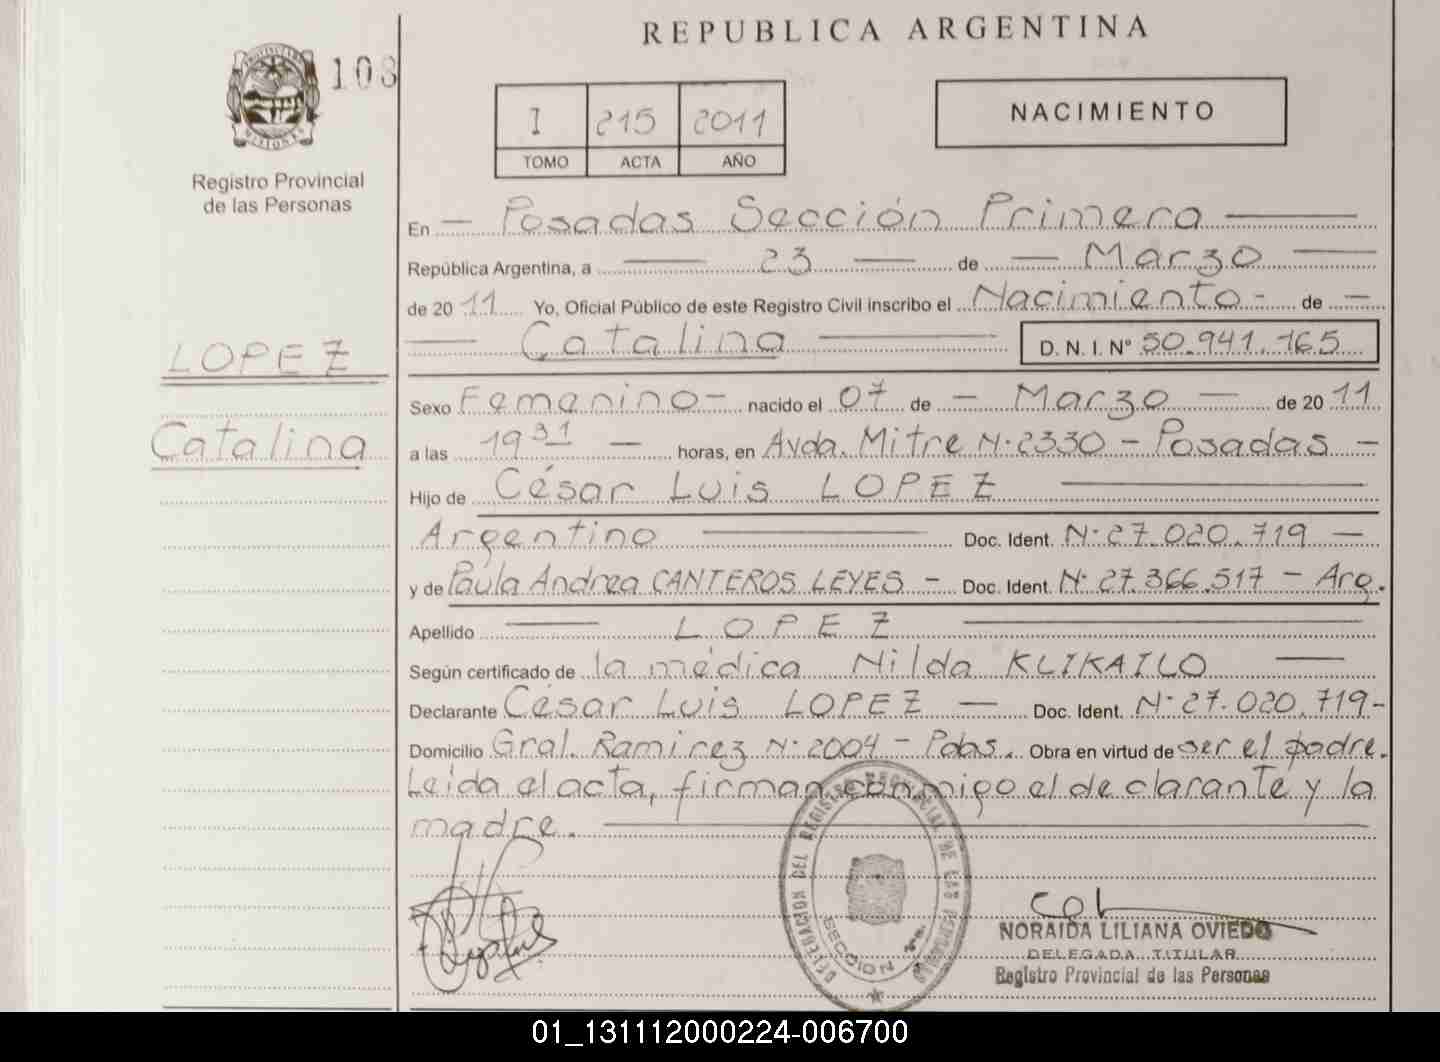 REPUBLICA ARGENTINA
108
PROVINCIA DE MISIONES
Registro Provincial
de las Personas
I 215 2011
TOMO ACTA AÑO
NACIMIENTO
En — Posadas Sección Primera —
República Argentina, a — 23 — de — Marzo —
de 2011 Yo, Oficial Público de este Registro Civil inscribo el Nacimiento - de —
— Catalina — D. N. I. Nº 50.941.165
LOPEZ
Catalina
Sexo Femenino - nacido el 07 de — Marzo — de 2011
a las 19 31 — horas, en Avda. Mitre Nº 2330 - Posadas -
Hijo de César Luis LOPEZ —
Argentino — Doc. Ident. Nº 27.020.719 —
y de Paula Andrea CANTEROS LEYES - Doc. Ident. Nº 27.366.517 - Arg.
Apellido — LOPEZ —
Según certificado de la médica Nilda KLIKAILO —
Declarante César Luis LOPEZ — Doc. Ident. Nº 27.020.719-
Domicilio Gral. Ramirez Nº 2004 - Pdas. Obra en virtud de ser el padre.
Leída el acta, firman conmigo el declarante y la
madre. —
DELEGACION DEL REGISTRO PROVINCIAL DE LAS PERSONAS
SECCION 1ª
NORAIDA LILIANA OVIEDO
DELEGADA TITULAR
Registro Provincial de las Personas
01_131112000224-006700